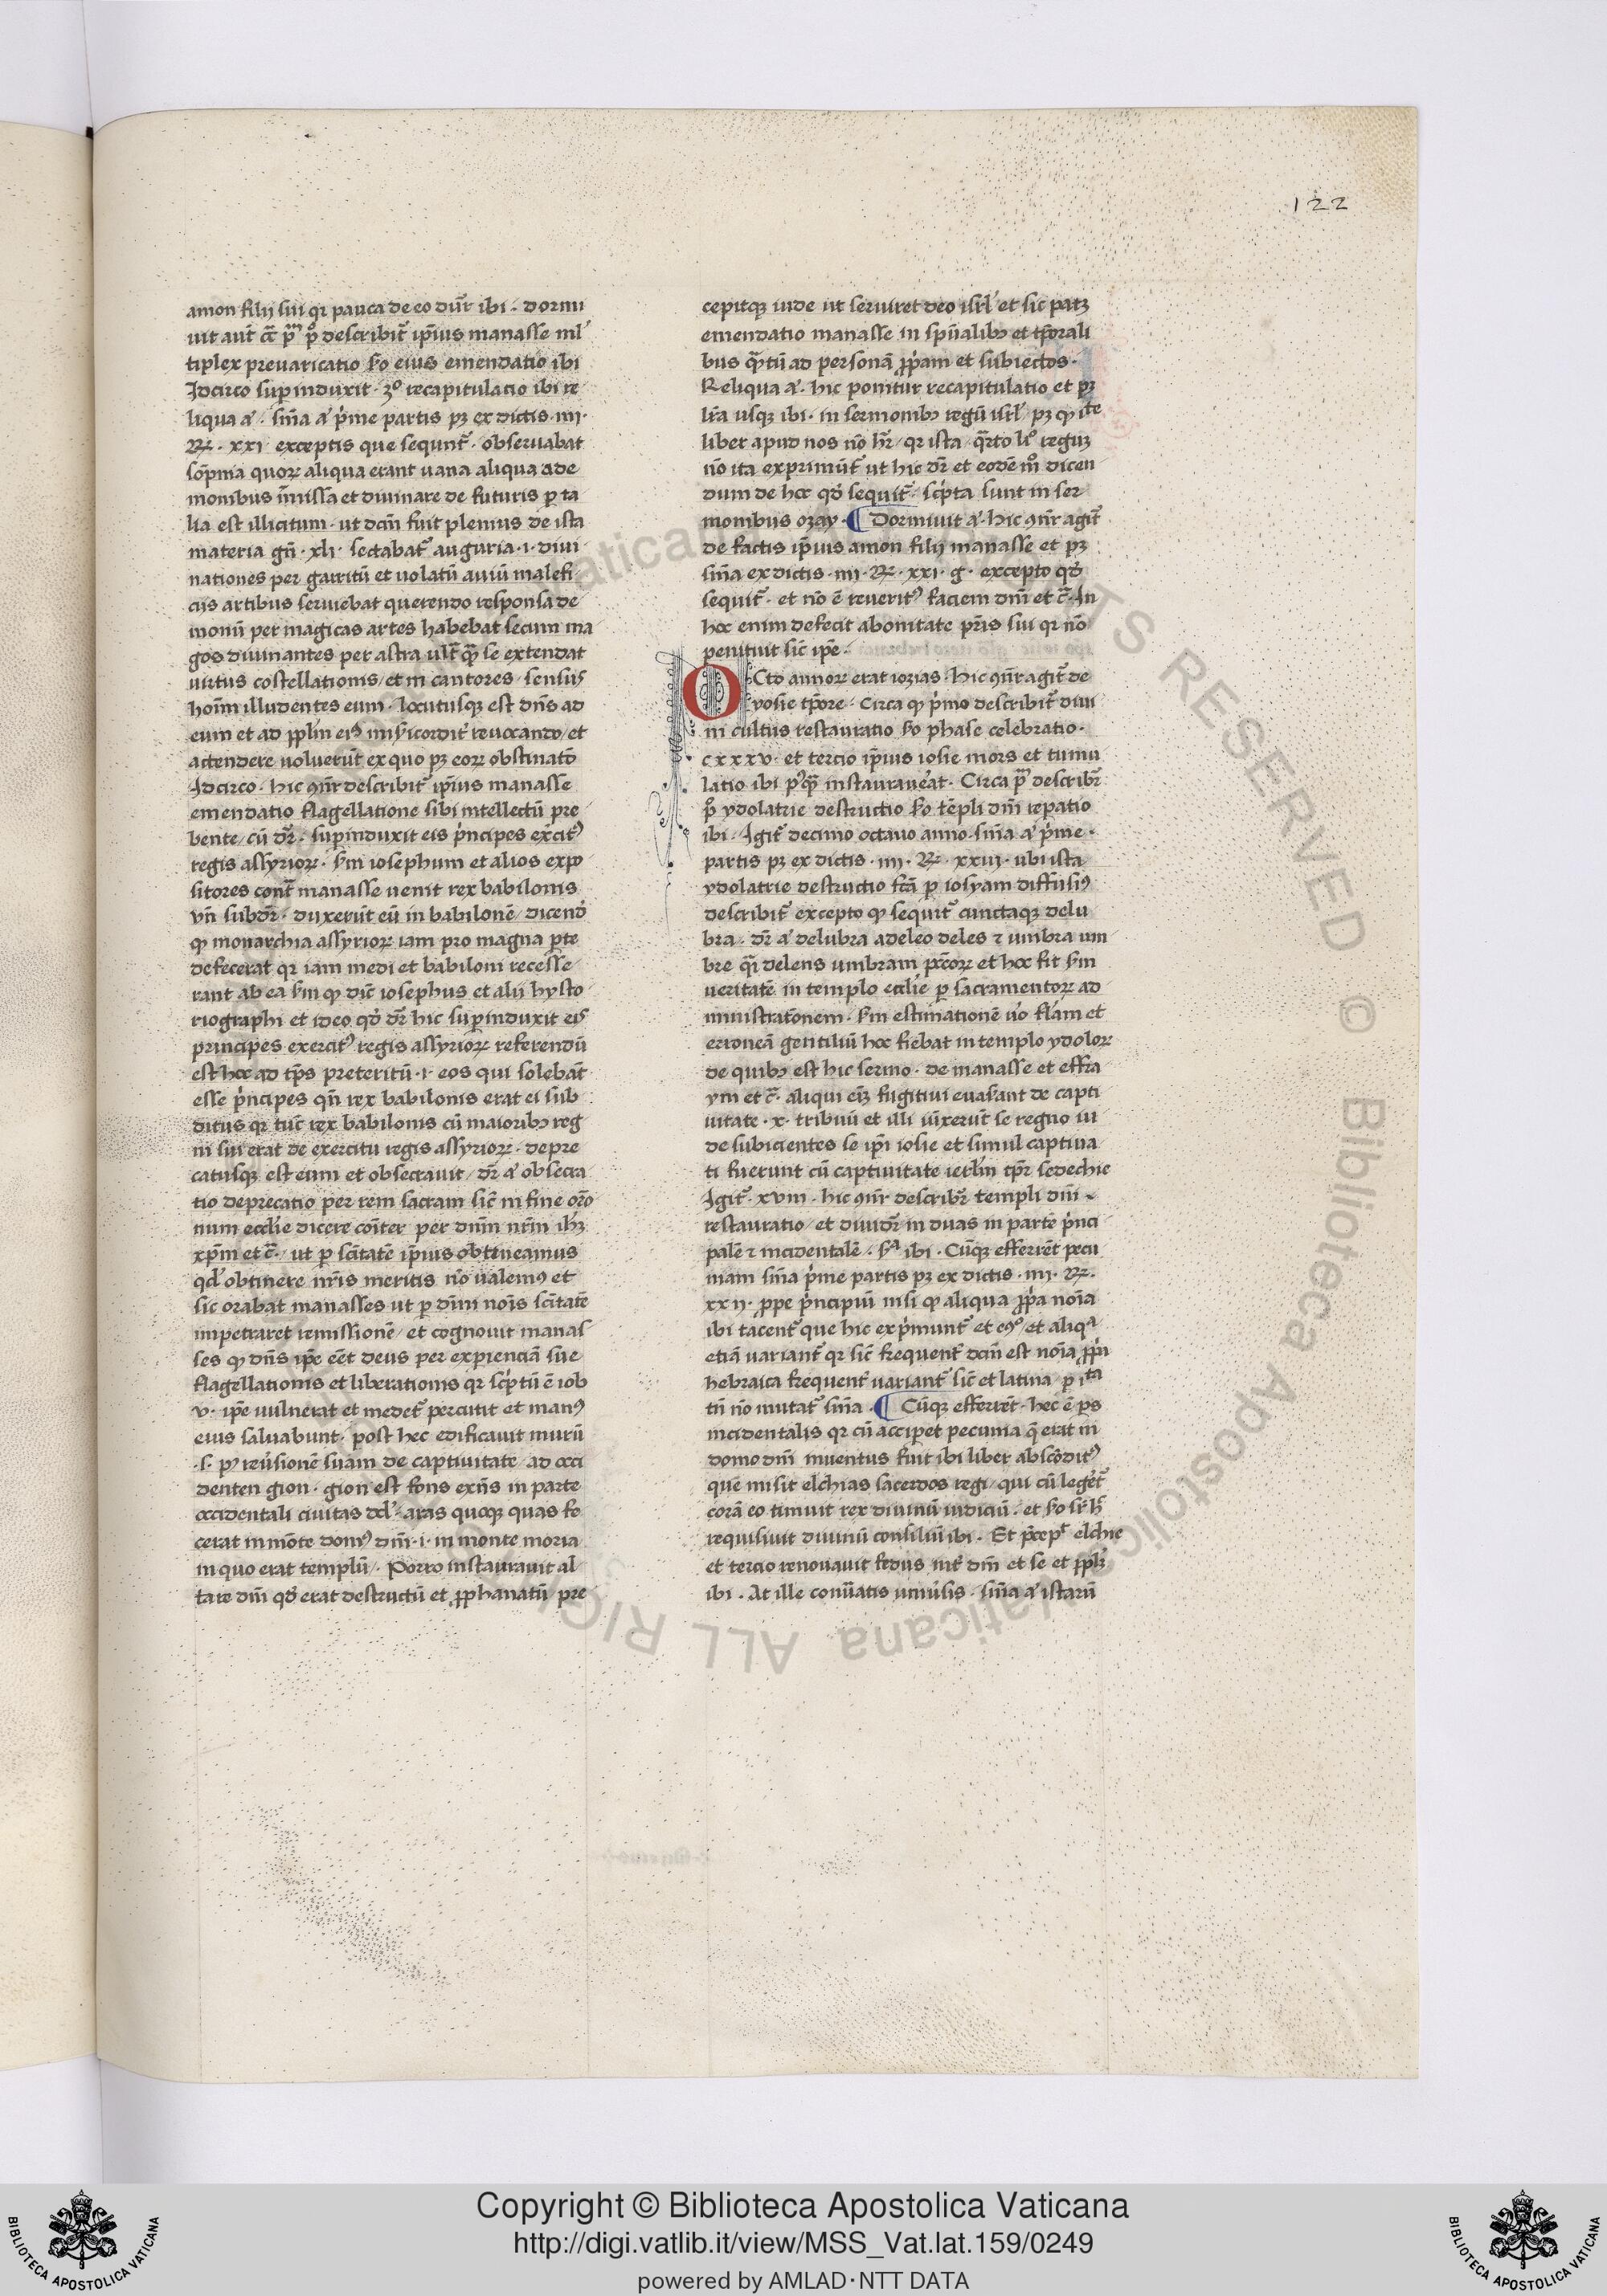 122
amon filij sui qr pauca de eo dūr ibi . dormi
uit aut̄ cc̄ pͫ pͦ describit̄ ip̄ius manasse ml̄
tiplex preuaricatio s̄o eius emendatio ibi
Idcirco sup̄induxit · 3º recapitulatio ibi re
liqua aʼ . sn̄ia aʼ p̓me partis pꝫ ex dictis · iiij ·
Rꝝ · xxi exceptis que sequnt̄ . obseruabat
som̄pnia quoꝝ aliqua erant uana aliqua a de
monibus īmissa et diuinare de futuris ꝑ ta
lia est illicitum · ut dcm̄ fuit plenius de ista
materia gn̄ · xli · sectabat̄ auguria · i · diui
nationes per garritū et uolatū auiū malefi
ciis artibus seruiebat querendo responsa de
monū per magicas artes habebat secum ma
gos diuinantes per astra ult̄ qͣ se extendat
uirtus costellationis / et in cantores · sensus
hoīm illudentes eum · locutusqꝫ est dn̄s ad
eum et ad ppl̄m eiꝰ mis̄icordit̓ reuocando / et
actendere uoluerūt ex quo pꝫ eoꝝ obstinatō
Idcirco · hic ↄn̄r describit̄ ip̄ius manasse
emendatio flagellatione sibi intellectū pre
bente / cū dr̄ · sup̄induxit eis p̓ncipes exercitꝰ
regis assyrioꝝ · s̄m iosephum et alios expo
sitores cont̄ manasse uenit rex babilonis
vn̄ subdr̄ · duxerūt eū in babilonē / dicend̓
ꝙ monarchia assyrioꝝ iam pro magna ꝑte
defecerat qr iam medi et babiloni recesse
rant ab ea s̄m ꝙ dic̄ iosephus et alii hysto
riographi et ideo qd̓ dr̄ hic sup̄induxit eis
principes exercitꝰ regis assyrioꝝ referendū
est hoc ad tp̄s preteritū · i · eos qui solebāt
esse p̓ncipes qn̄ rex babilonis erat ei sub
ditus qr tūc rex babilonis cū maioribꝫ reg
ni sui erat de exercitu regis assyrioꝝ · depre
catusqꝫ est eum et obsecrauit / dr̄ aʼ obsecra
tio deprecatio per rem sacram sic̄ in fine orō
num eccl̄ie dicere com̄ter per dn̄m nr̄m ihꝫ
xp̄m et c̄ · / ut ꝑ scītatē ip̄ius obtineamus
qd̓ obtinere nr̄is meritis nō ualemꝰ et
sic orabat manasses ut ꝑ diuini noīs scītatē
impetraret remissionē / et cognouit manas
ses ꝙ dn̄s ip̄e eēt deus per experienciā sue
flagellationis et liberationis qr sc̓ptū ē iob
v · ip̄e uulnerat et medet̄ percutit et manꝰ
eius saluabunt · post hec edificauit murū
· s · pꝰ reūsionē suam de captiuitate / ad occi
denten gion · gion est fons exn̄s in parte
occidentali ciuitas dd̄ · aras quoqꝫ quas fe
cerat in mōte domꝰ dn̄i · i · in monte moria
in quo erat templū / · Porro instaurauit al
tare dn̄i qd̓ erat destructū et ꝓphanatū pre
cepitqꝫ iude ut seruiret deo isrl̄ et sic patꝫ
emendatio manasse in spūalibꝫ et tp̄orali
bus qͣtū ad personā ꝓp̓am et subiectos ·
Reliqua aʼ · hic ponitur recapitulatio et pꝫ
lr̄a usqꝫ ibi · in sermonibꝫ regū isrl̄ pꝫ ꝙ iste
liber apud nos nō hr̄ / qr ista / qͣrto liº reguꝫ
nō ita exprimūt̄ ut hic dr̄ et eodē mº dicen
dum de hoc qd̓ sequit̄ · sc̓pta sunt in ser
monibus ozay · ¶ Dormiuit aʼ · hic ↄn̄r agit̄
de factis ip̄ius amon filij manasse et pꝫ
sn̄ia ex dictis · iiij · Rꝝ · xxi · g · excepto qd̓
sequit̄ · et nō ē reueritꝰ faciem dn̄i et c̄ · In
hoc enim defecit a bonitate pr̄is sui qr nō
penituit sic̄ ip̄e ·
OCto annoꝝ erat iozias · hic ↄn̄r agit̄ de
yosie tp̄ore · Circa ꝙ p̓mo describit̄ diui
ni cultus restauratio s̄o phase celebratio ·
cxxxv · et tercio ip̄ius iosie mors et tumu
latio ibi pꝰqͣ instaurauēat · Circa pͫ describr̄
pͦ ydolatrie destructio s̄o tēpli dn̄i rep̄atio
ibi · Igit̄ decimo octauo anno · sn̄ia aʼ p̓me ·
partis pꝫ ex dictis · iiij · Rꝝ · xxiij · ubi ista
ydolatrie destructio fc̄ā ꝑ iosyam diffusiꝰ
describit̄ excepto ꝙ sequit̄ cunctaqꝫ delu
bra · dr̄ aʼ delubra a deleo deles ⁊ umbra um
bre qͣi delens umbram pc̄coꝝ et hoc fit s̄m
ueritatē in templo eccl̄ie ꝑ sacramentoꝝ ad
ministratōnem · s̄m estimationē u̓o fl̄am et
erroneā gentiliū hoc fiebat in templo ydoloꝝ
de quibꝫ est hic sermo · de manasse et effra
ym et c̄ · aliqui eīꝫ fugitiui euas̄ant de capti
uitate · x · tribuū et illi uixerūt se regno iu
de subicientes se ip̄i iosie et simul captiua
ti fuerunt cū captiuitate ierl̄m tp̄r sedechie
Igit̄ · xviii · hic ↄn̄r describr̄ templi dn̄i ·
restauratio / et diuidr̄ in duas in partē p̓nci
palē ⁊ incidentalē · sͣ ibi · Cūqꝫ efferrēt pecu
niam sn̄ia p̓me partis pꝫ ex dictis · iiij · Rꝝ ·
xxij · ꝓpe p̓ncipiū nisi ꝙ aliqua ꝓp̓a noīa
ibi tacent̄ que hic exp̓munt̄ et eↄº / et aliqͣ
etiā uariant̄ qr sic̄ frequent̄ dcm̄ est noīa ꝓp̓a
hebraica frequent̄ uariant̄ sic̄ et latina / ꝑ ita
tn̄ nō mutat̄ sn̄ia · ¶ Cūqꝫ efferrēt · hec ē ꝑs
incidentalis qr cū accip̄et pecunia q̄ erat in
domo dn̄i inuentus fuit ibi liber abscōditꝰ
quē misit elchias sacerdos regi / qui cū leger̄t̄
corā eo timuit rex diuinū iudiciū · et s̄o
requisiuit diuinū consiliū ibi · Et p̄cepᵗ elchie
et tercio renouauit fedus int̄ dn̄i et se et ppl̄ꝫ
ibi · At ille conu̓catis uniu̓sis · sn̄ia aʼ istarū
Copyright © Biblioteca Apostolica Vaticana
http://digi.vatlib.it/view/MSS_Vat.lat.159/0249
powered by AMLAD·NTT DATA
BIBLIOTECA APOSTOLICA VATICANA
BIBLIOTECA APOSTOLICA VATICANA
© Biblioteca Apostolica Vaticana ALL RIGHTS RESERVED